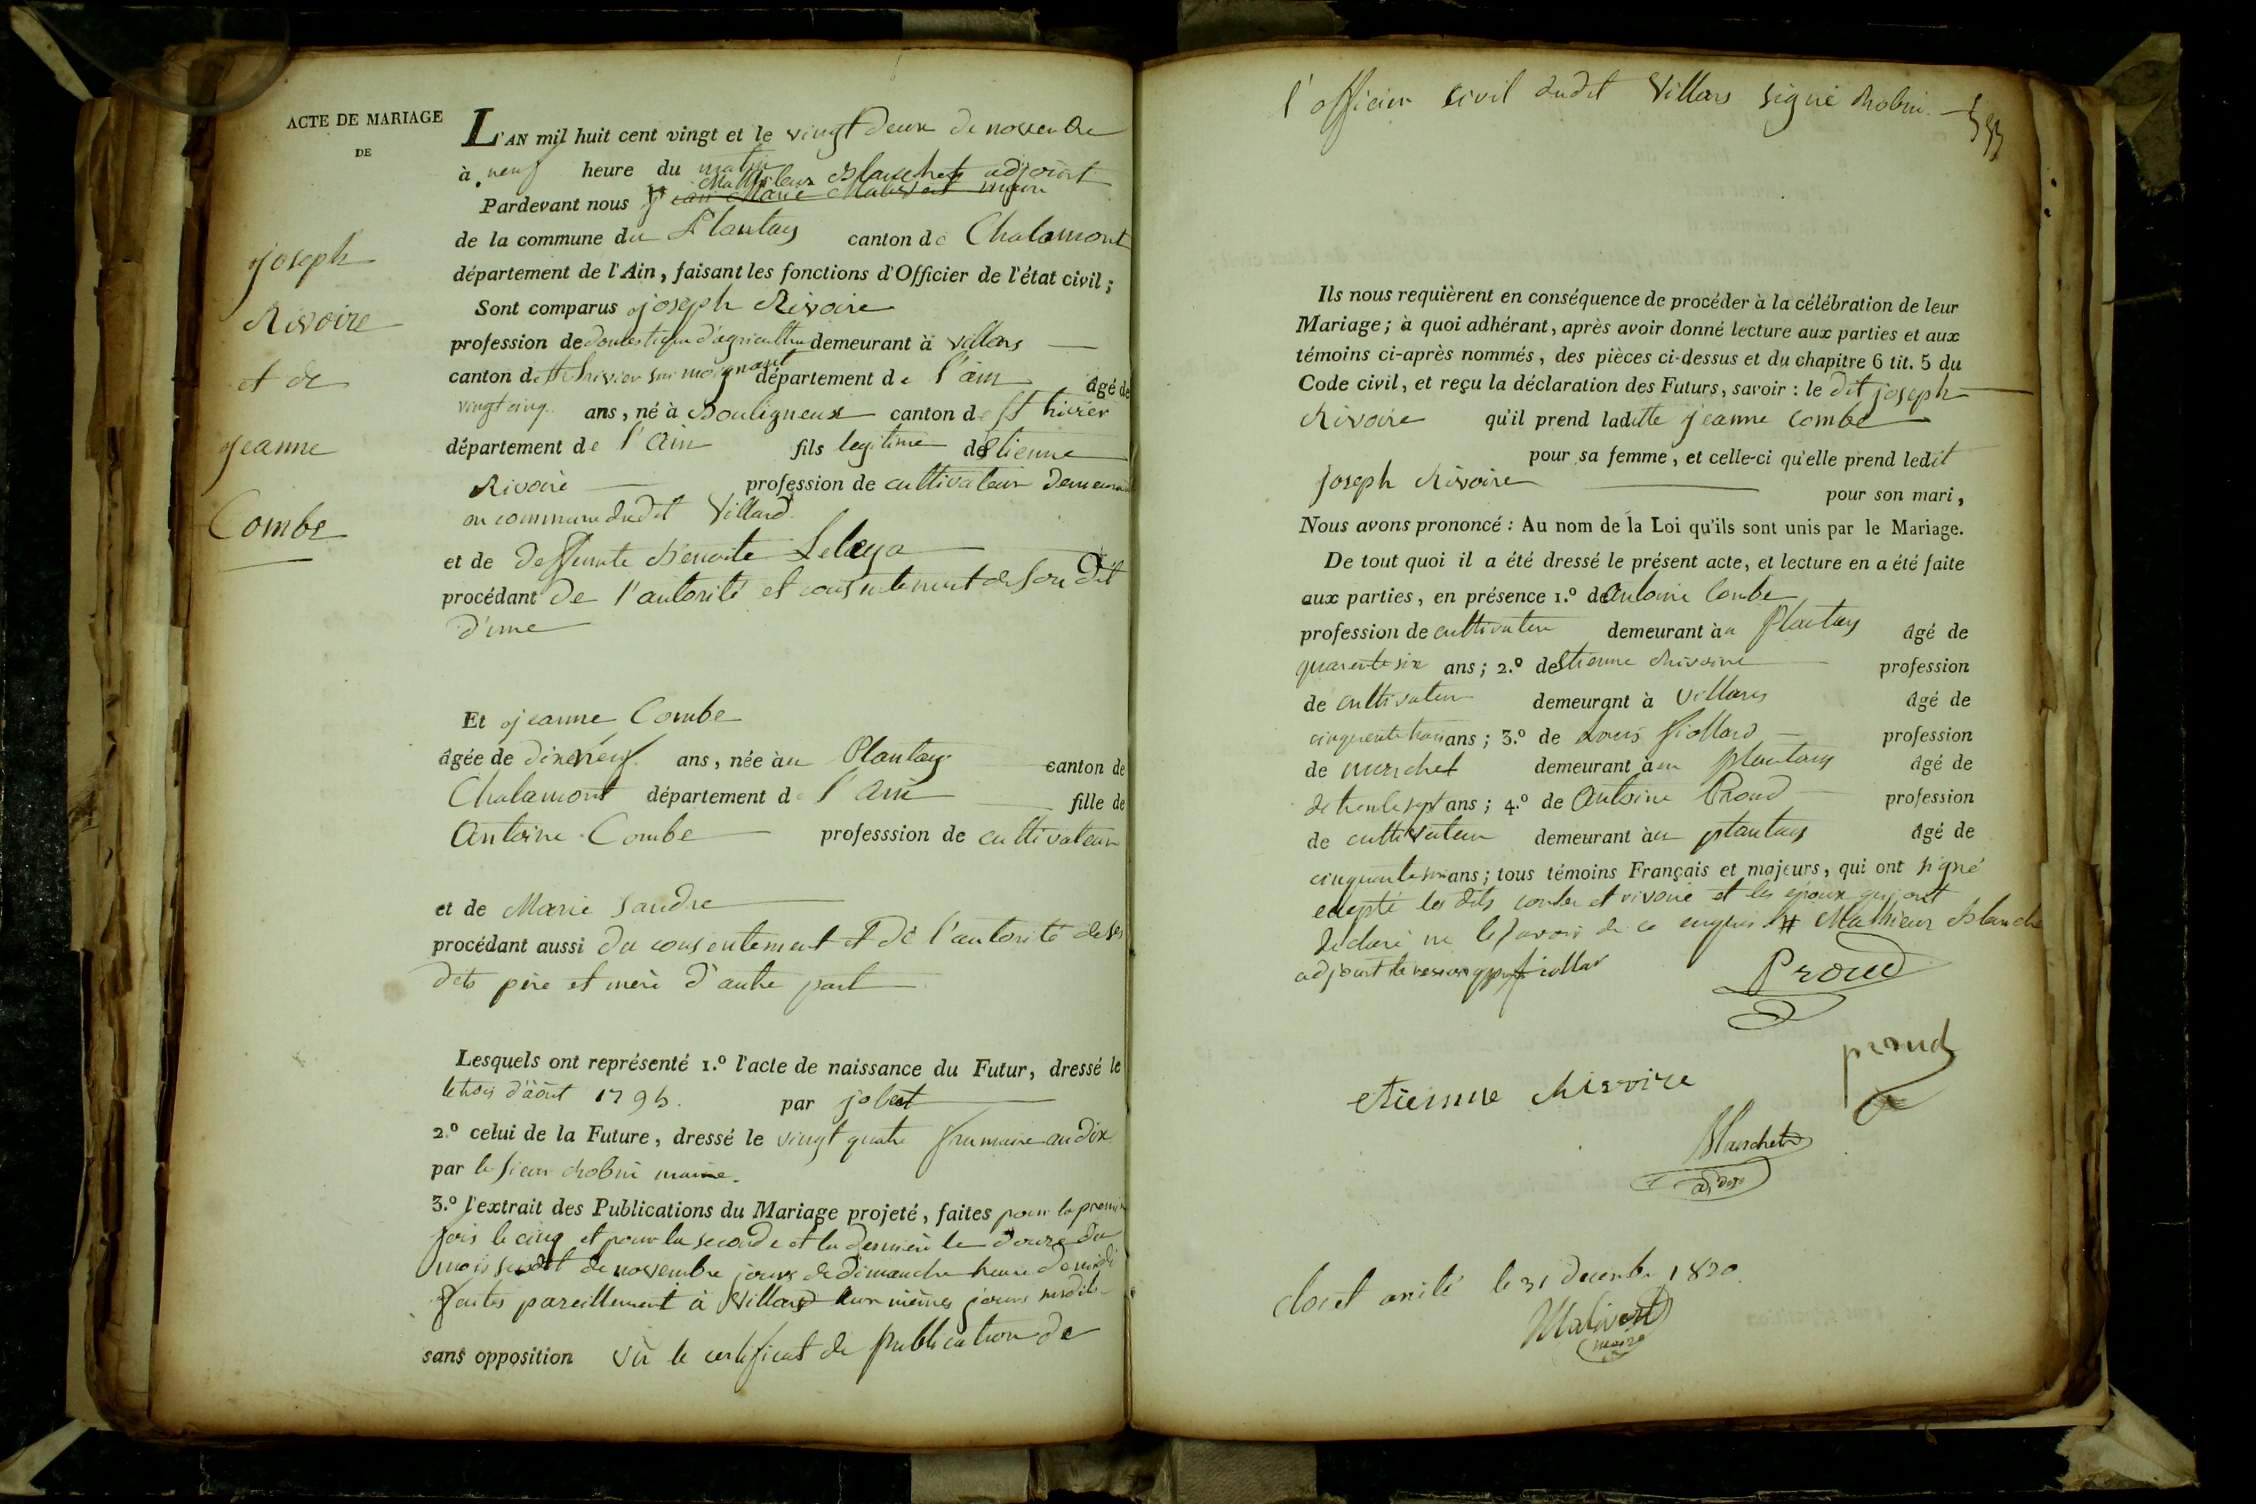 ACTE DE MARIAGE
DE
joseph
Rivoire
et de
jeanne
Combe
L'AN mil huit cent vingt et le vingt deux de novembre
à neuf heure du matin
Mathieu Blanchet adjoint
Pardevant nous jean Marie Malivert maire
de la commune du Plantay canton de Chalamont
département de l'Ain, faisant les fonctions d'Officier de l'état civil;
Sont comparus joseph Rivoire
profession de domestique d'agriculture demeurant à villars
canton de St trivier sur moignant département de l'ain âgé de
vingt cinq ans, né à Bouligneux canton de St trivier
département de l'ain fils legitime de Etienne
Rivoire profession de cultivateur demeurant
en commune dudit Villard
et de deffunte Benoite
procédant de l'autorité et consentement de son dit
d'une
Et jeanne Combe
âgée de dixneuf ans, née au Plantay canton de
Chalamont département de l'ain fille de
Antoine Combe professsion de cultivateur
et de Marie Sandre
procédant aussi du consentement et de l'autorité de ses
dits père et mère d'autre part
Lesquels ont représenté 1.º l'acte de naissance du Futur, dressé le
le trois d'août 1795. par jobert
2.º celui de la Future, dressé le vingt quatre frumaire an dix
par le sieur Robin maire.
3.º l'extrait des Publications du Mariage projeté, faites pour la premiere
fois le cinq et pour la seconde et la derniere le douze du
mois susdit de novembre jours de dimanche heure de midi
faites pareillement à Villard aux mêmes jours susdits
sans opposition vû le certificat de publication de
l'officier civil dudit Villars signé Robin.
Ils nous requièrent en conséquence de procéder à la célébration de leur
Mariage; à quoi adhérant, après avoir donné lecture aux parties et aux
témoins ci-après nommés, des pièces ci-dessus et du chapitre 6 tit. 5 du
Code civil, et reçu la déclaration des Futurs, savoir: le dit joseph
Rivoire qu'il prend laditte jeanne Combe
pour sa femme, et celle-ci qu'elle prend ledit
joseph Rivoire pour son mari,
Nous avons prononcé: Au nom de la Loi qu'ils sont unis par le Mariage.
De tout quoi il a été dressé le présent acte, et lecture en a été faite
aux parties, en présence 1.º de Antoine Combe
profession de cultivateur demeurant au Plantay âgé de
quarente six ans; 2.º de Etienne Rivoire profession
de cultivateur demeurant à Villars âgé de
cinquente trois ans; 3.º de Louis fiollard profession
de demeurant au plantay âgé de
de trente sept ans; 4.º de Antoine Proud profession
de cultivateur demeurant au plantay âgé de
cinquante ans; tous témoins Français et majeurs, qui ont signé
excepté les dits combe et rivoire et les époux qui ont
déclaré ne le savoir de ce enquis # Mathieux Blanchet
adjoint fiollar
Proud
proud
etienne Rivoire
Blanchet
adjo
clos et arrêté le 31 decembre 1820
Malivert
maire